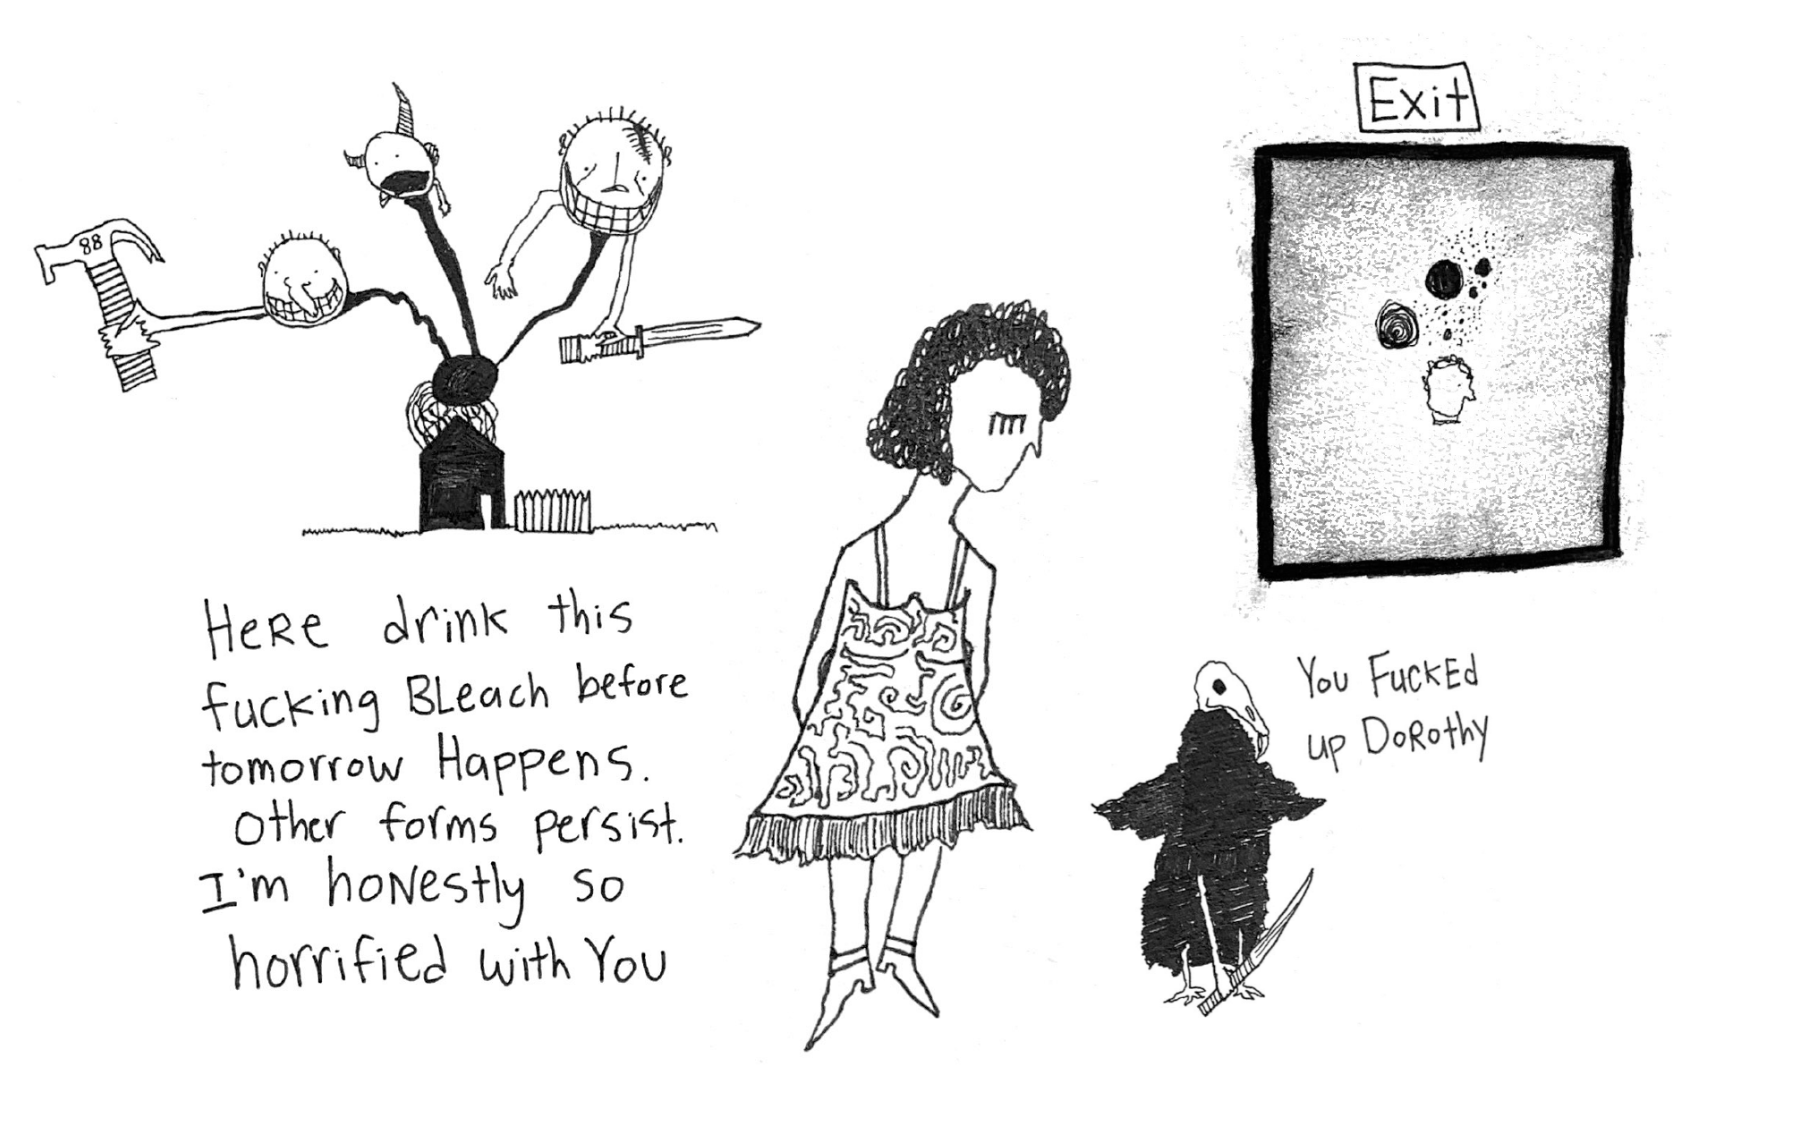 88
Exit
HeRe drink this
fucking BLeach before
tomorrow Happens.
other forms persist.
I'm hoNestly so
horrified with You
You FucKEd
up DoRothy